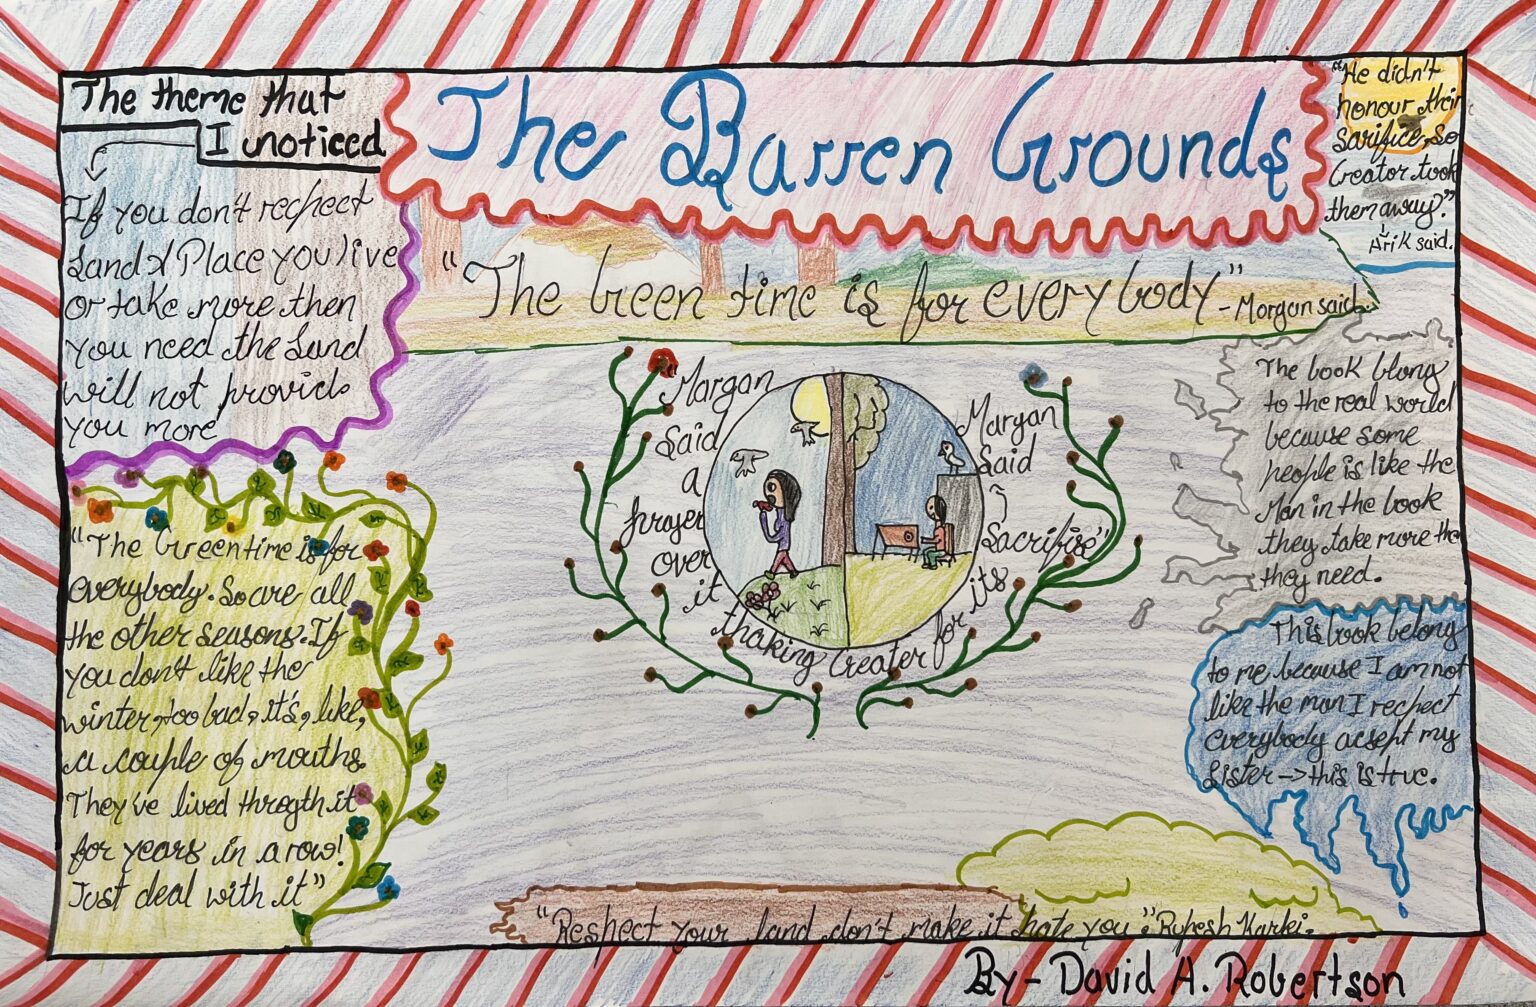 The theme that
I noticed
If you don't rechect
Land & Place you live
or take more then
you need the Land
will not provid
you more
The Barren Grounds
"He didn't
honour their
sarifice, so
Creator took
them away?"
Arik said.
"The Green time is for everybody" - Morgan said.
"The Greentime is for
everybody. So are all
the other seasons. If
you don't like the
winter, too bad, it's, like,
a couple of mouths.
They've lived throgth it
for years in a row!
Just deal with it"
Morgan
said
a
prayer
over
it
thaking Creater for its
Sacrifise"
Morgan
Said
The book blong
to the real world
because some
people is like the
Man in the book
they take more the
they need.
This book belong
to me because I am not
like the man I rechect
everybody acsept my
sister -> this is true.
"Reshect your land don't make it hate you". Rupesh Karki.
By - David A. Robertson